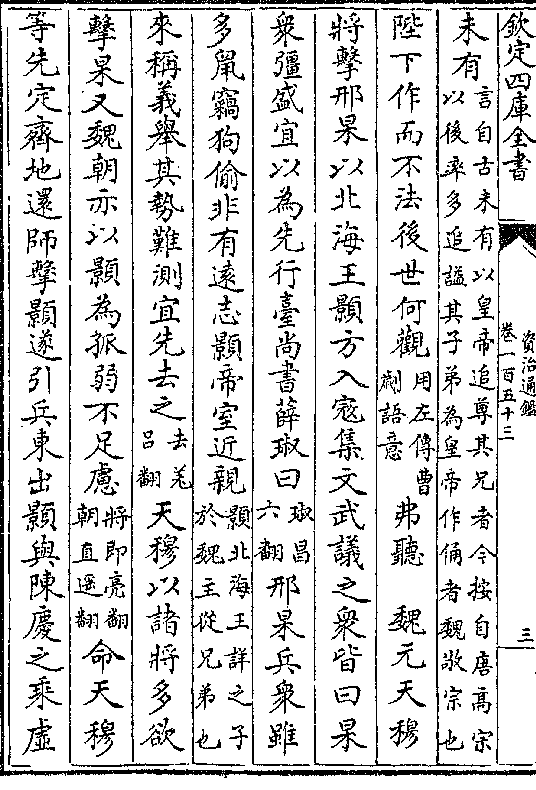 欽定四庫全書
資治通鑑
卷一百五十三
三
未有言自古未有以皇帝追尊其兄者今按自唐高宗以後率多追謚其子弟為皇帝作俑者魏敬宗也
陛下作而不法後世何觀用左傳曹劌語意弗聽　魏元天穆
將擊邢杲以北海王顥方入寇集文武議之衆皆曰杲
衆彊盛宜以為先行臺尚書薛琡曰琡昌六翻邢杲兵衆雖
多鼠竊狗偷非有逺志顥帝室近親顥北海王詳之子於魏主從兄弟也
來稱義舉其勢難測宜先去之去羌吕翻天穆以諸將多欲
擊杲又魏朝亦以顥為孤弱不足慮將即亮翻朝直遥翻命天穆
等先定齊地還師擊顥遂引兵東出顥與陳慶之乘虚